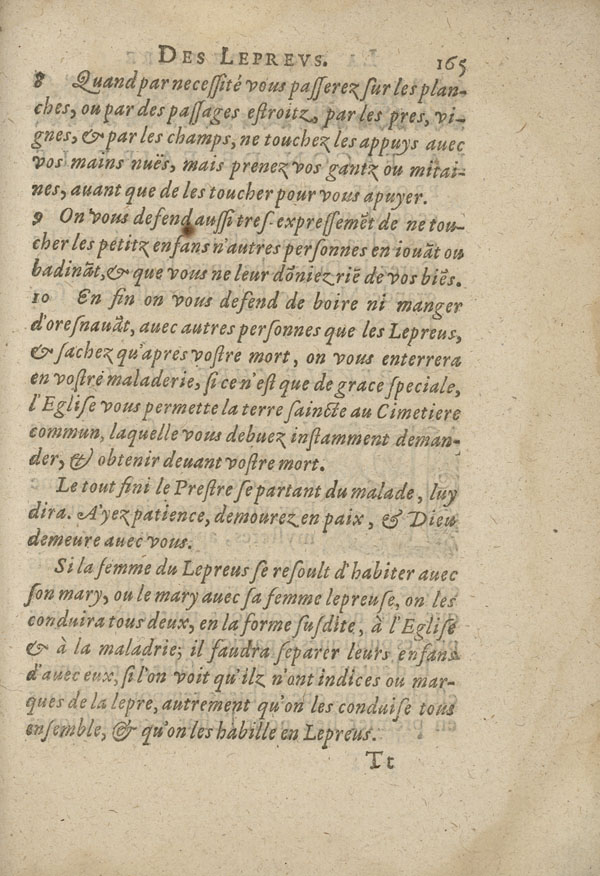 DES LEPREVS. 165
8 Quand par necessité vous passerez sur les plan-
ches, ou par des passages estroitz, par les pres, vi-
gnes, & par les champs, ne touchez les appuys avec
vos mains nuës, mais prenez vos gantz ou mitai-
nes, auant que de les toucher pour vous apuyer.
9 On vous defend aussi tres-expressemẽt de ne tou-
cher les petitz enfans n'autres personnes en iouãt ou
badinãt, & que vous ne leur dõniez riẽ de vos biẽs.
10 En fin on vous defend de boire ni manger
d'oresnauãt, avec autres personnes que les Lepreus,
& sachez qu'apres vostre mort, on vous enterrera
en vostre maladerie, si ce n'est que de grace speciale,
l'Eglise vous permette la terre saincte au Cimetiere
commun, laquelle vous debuez instamment deman-
der, & obtenir deuant vostre mort.
Le tout fini le Prestre se partant du malade, luy
dira. Ayez patience, demourez en paix, & Dieu
demeure avec vous.
Si la femme du Lepreus se resoult d'habiter avec
son mary, ou le mary avec sa femme lepreuse, on les
conduira tous deux, en la forme susdite, à l'Eglise
& à la maladrie; il faudra separer leurs enfans
d'avec eux, si l'on voit qu'ilz n'ont indices ou mar-
ques de la lepre, autrement qu'on les conduise tous
ensemble, & qu'on les habille en Lepreus.
Tt